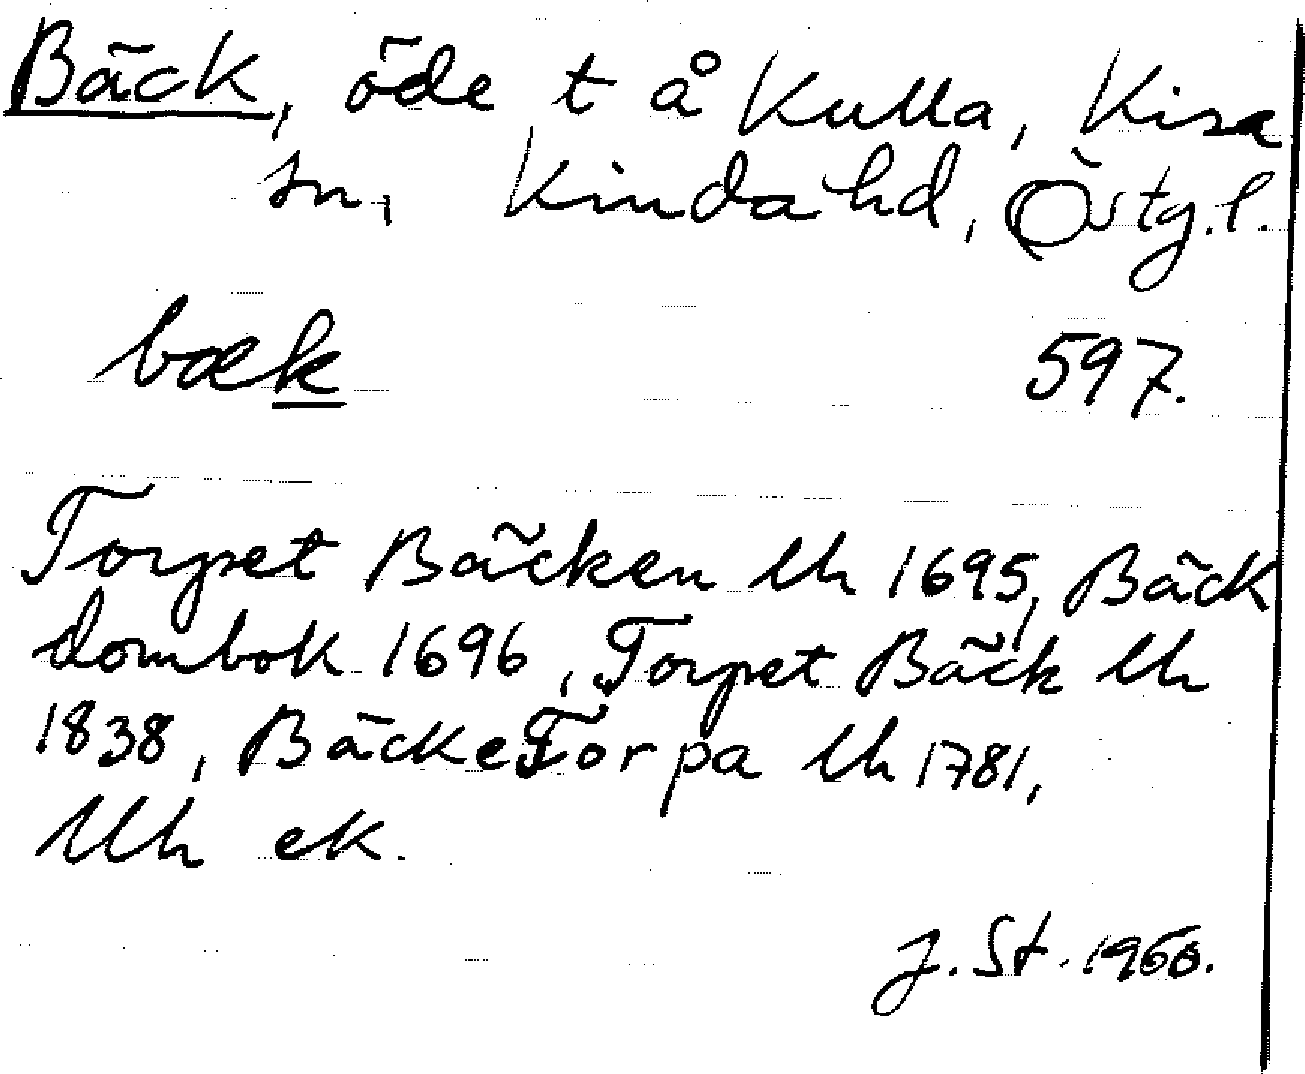 Bäck, öde t å Kulla, Kisa
sn, Kinda hd, Östg.l.
bæk 597.
Torpet Bäcken lh 1695, Bäck
dombok 1696, Torpet Bäck lh
1838, BäckeTorpa lh 1781,
Uh ek.
J. St. 1960.